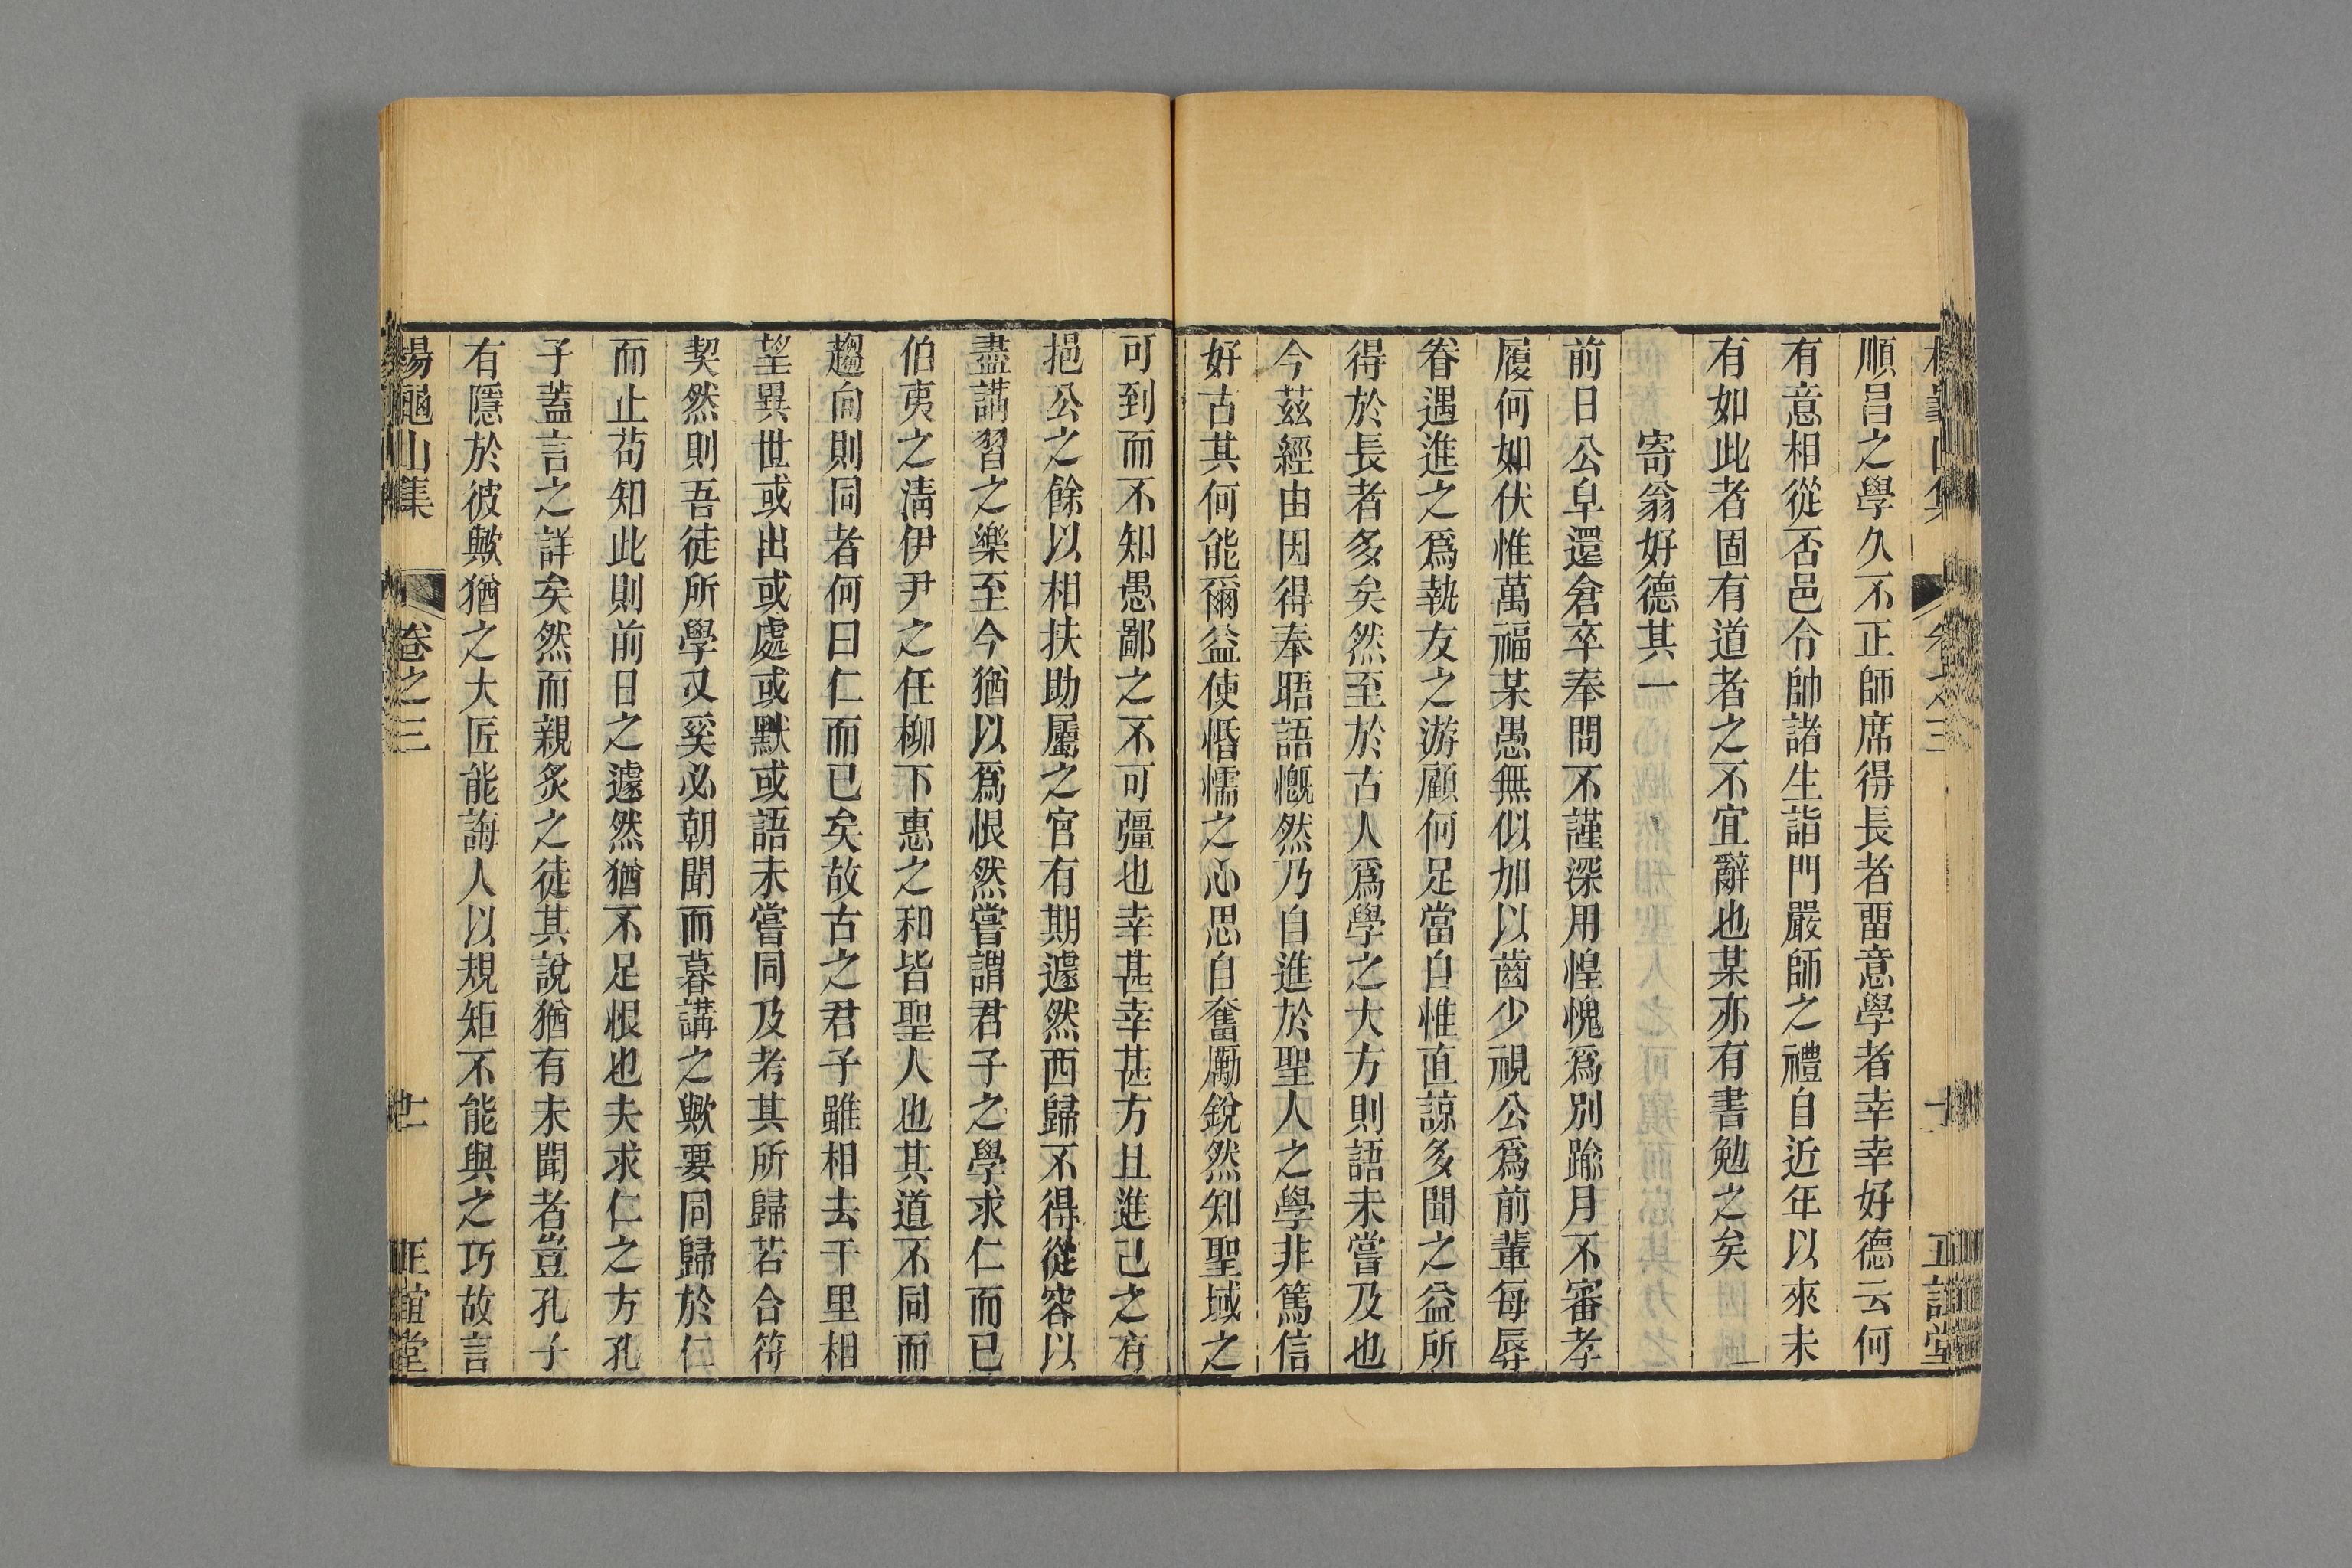 順昌之學久不正師席得長者畱意學者幸幸好德云何
有意相從否邑令帥諸生詣門嚴師之禮自近年以來未
有如此者固有道者之不宜辭也某亦有書勉之矣
寄翁好德其一
前日公卓還倉卒奉問不謹深用惶愧爲別踰月不審孝
履何如伏惟萬福某愚無似加以齒少視公爲前輩每辱
眷遇進之爲執友之游顧何足當自惟直諒多聞之益所
得於長者多矣然至於古人爲學之大方則語未嘗及也
今茲經由因得奉晤語慨然乃自進於聖人之學非篤信
好古其何能爾益使惛懦之心思自奮勵銳然知聖域之
可到而不知愚鄙之不可彊也幸甚幸甚方且進己之有
挹公之餘以相扶助屬之官有期遽然西歸不得從容以
盡講習之樂至今猶以爲恨然嘗謂君子之學求仁而已
伯夷之淸伊尹之任柳下惠之和皆聖人也其道不同而
趨向則同者何曰仁而已矣故古之君子雖相去千里相
望異世或出或處或默或語未嘗同及考其所歸若合符
契然則吾徒所學又奚必朝聞而暮講之歟要同歸於仁
而止苟知此則前日之遽然猶不足恨也夫求仁之方孔
子蓋言之詳矣然而親炙之徒其說猶有未聞者豈孔子
有隱於彼歟猶之大匠能誨人以規矩不能與之巧故言
楊龜山集 卷之三 十一 正誼堂